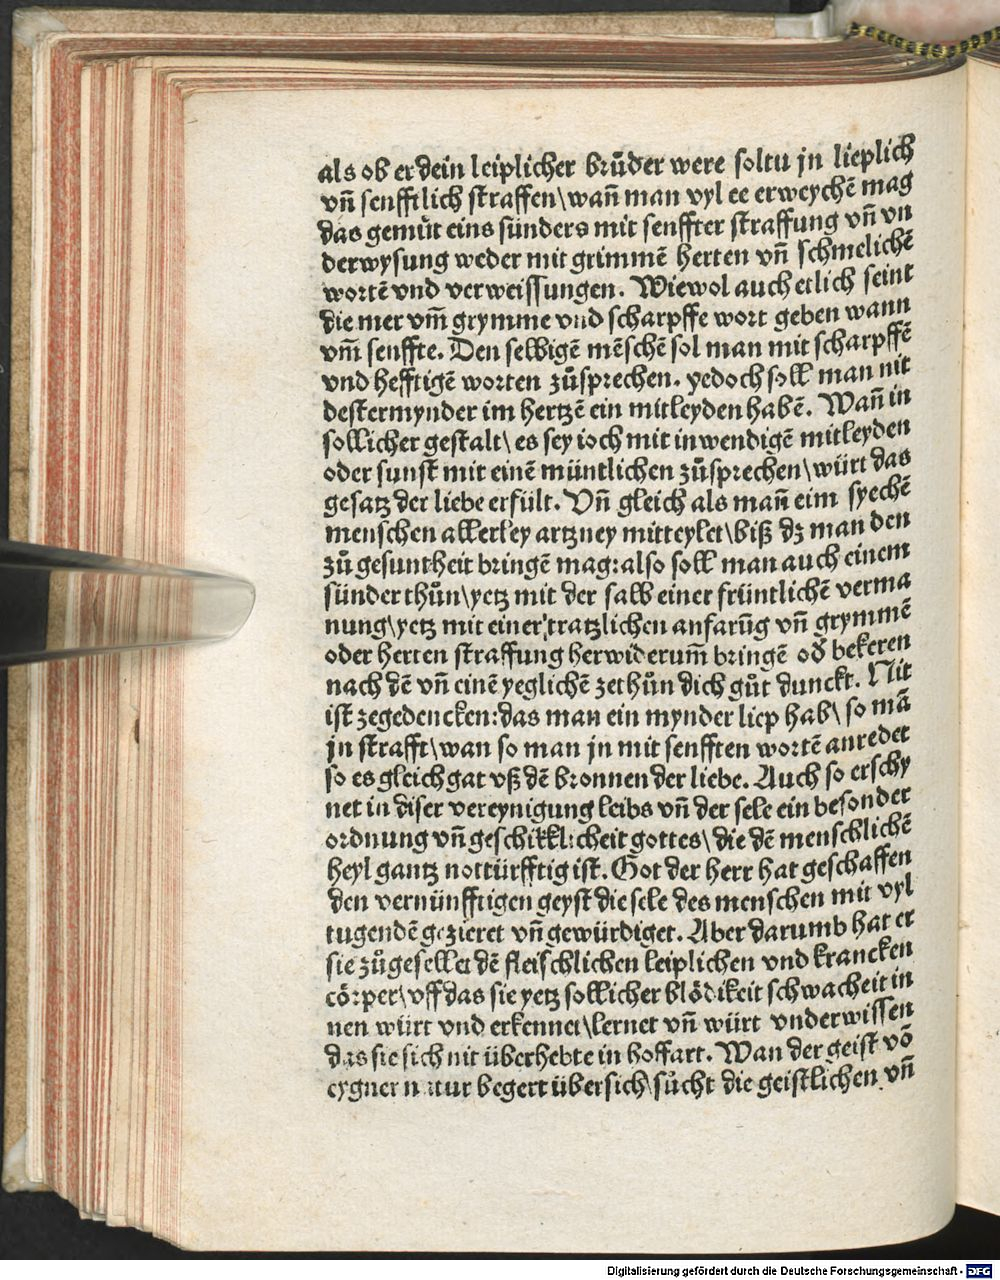 als ob er dein leiplicher brůder were soltu jn lieplich
vñ senfftlich straffen\wañ man vyl ee erweychē mag
das gemüt eins sünders mit senffter straffung vñ vn
derwysung weder mit grimmē herten vñ schmelichē
wortē vnd verweissungen. Wiewol auch etlich seint
die mer vm̄ grymme vnd scharpffe wort geben wann
vm̄ senffte. Den selbigē mēschē sol man mit scharpffē
vnd hefftigē worten zůsprechen. yedoch soll man nit
destermynder im hertzē ein mitleyden habē. Wañ in
sollicher gestalt\ es sey ioch mit inwendigē mitleyden
oder sunst mit einē müntlichen zůsprechen\würt das
gesatz der liebe erfült. Vñ gleich als mañ eim syechē
menschen allerley artzney mitteylet\biß dz man den
zů gesuntheit bringē mag:also soll man auch einem
sünder thůn\yetz mit der salb einer früntlichē verma
nung\yetz mit einer tratzlichen anfarūg vñ grymmē
oder herten straffung herwiderum̄ bringē od̄ bekeren
nach dē vñ einē yeglichē zethůn dich gůt dunckt. Nit
ist zegedencken:das man ein mynder liep hab\ so mā
jn strafft\wan so man jn mit senfften wortē anredet
so es gleich gat vß dē bronnen der liebe. Auch so erschy
net in diser vereynigung leibs vñ der sele ein besonder
ordnung vñ geschikklicheit gottes\ die dē menschlichē
heyl gantz nottürfftig ist. Got der herr hat geschaffen
den vernünfftigen geyst die sele des menschen mit vyl
tugendē gezieret vñ gewürdiget. Aber darumb hat er
sie zůgesellet dē fleischlichen leiplichen vnd krancken
cörper\vff das sie yetz sollicher blödikeit schwacheit in
nen würt vnd erkennet\lernet vñ würt vnderwissen
das sie sich nit überhebte in hoffart. Wan der geist vō
eygner natur begert übersich\sůcht die geistlichen vñ
Digitalisierung gefördert durch die Deutsche Forschungsgemeinschaft - DFG